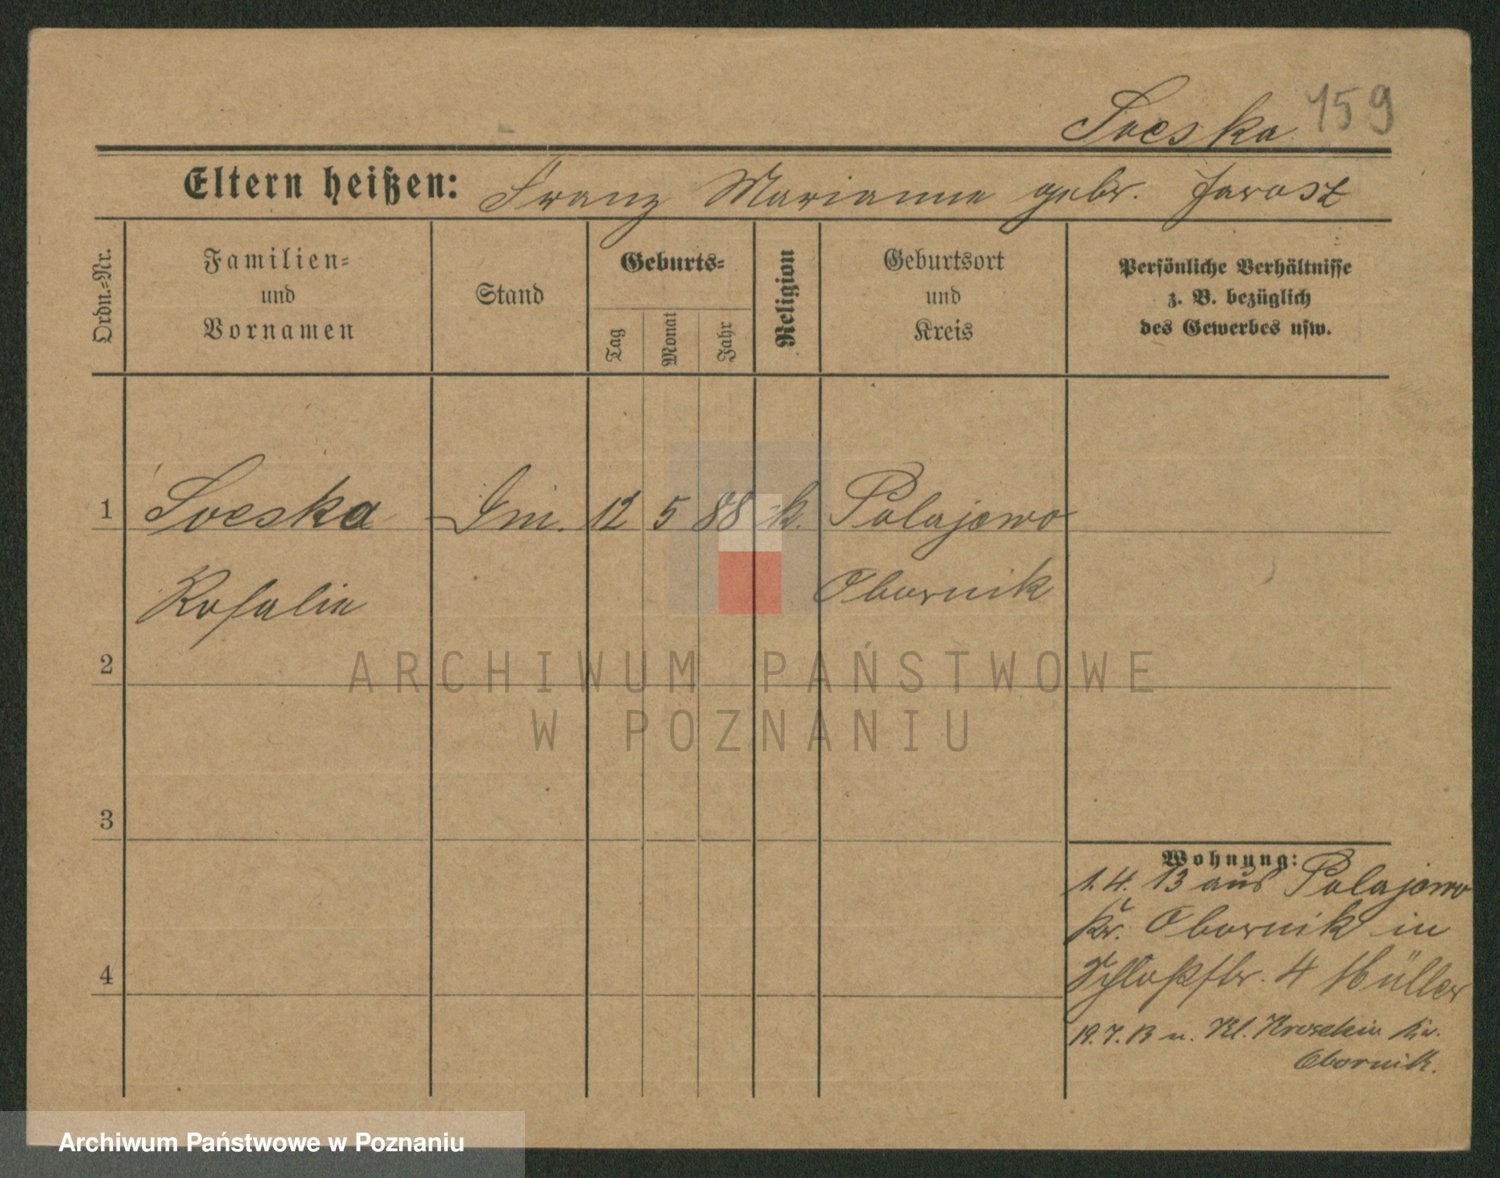 Soeska 159
Eltern heißen: Franz Marianne gebr. Jarosz
Ordn.-Nr.
Familien-
und
Vornamen
Stand
Geburts-
Tag
Monat
Jahr
Religion
Geburtsort
und
Kreis
Persönliche Verhältnisse
z. B. bezüglich
des Gewerbes usw.
1 Soeska 12 5 88 k. Polajewo
Rosalie Obornik
2
3
4
Wohnung:
1. 4. 13 aus Polajewo
Kr. Obornik in
Schloßstr. 4 Müller
19. 7. 13 n. Kl. Kroschin Kr.
Obornik.
ARCHIWUM PAŃSTWOWE
W POZNANIU
Archiwum Państwowe w Poznaniu